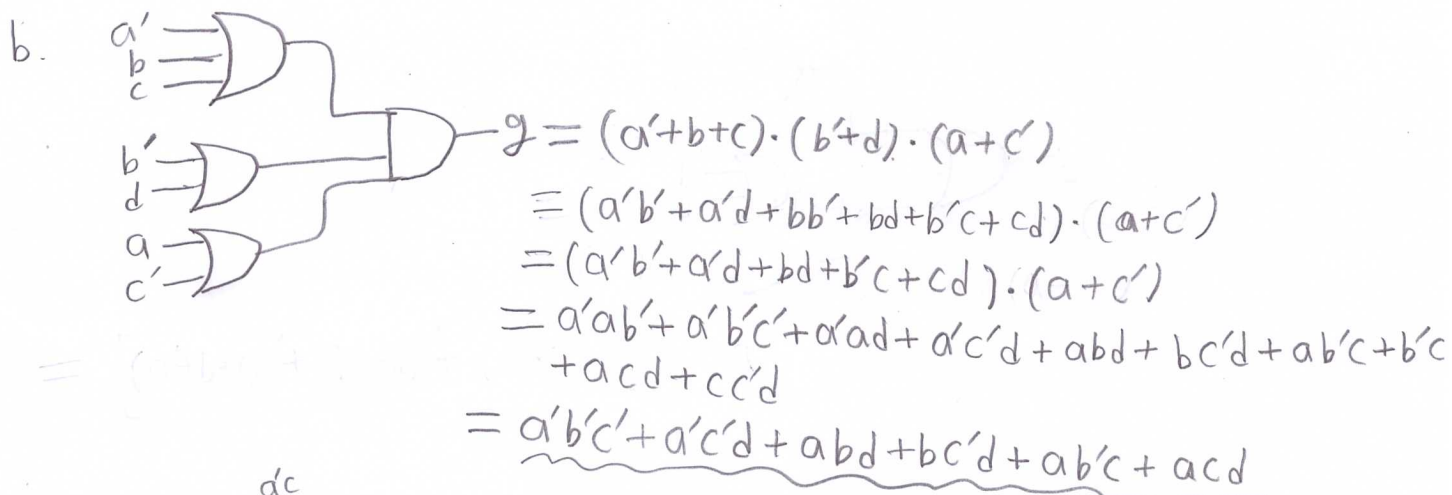 b.
a'
b
c
b'
d
a
c'
g = (a'+b+c)·(b'+d)·(a+c')
= (a'b'+a'd+bb'+bd+b'c+cd)·(a+c')
= (a'b'+a'd+bd+b'c+cd)·(a+c')
= a'ab'+a'b'c'+a'ad+a'c'd+abd+bc'd+ab'c+b'c
+acd+cc'd
= a'b'c'+a'c'd+abd+bc'd+ab'c+acd
a'c